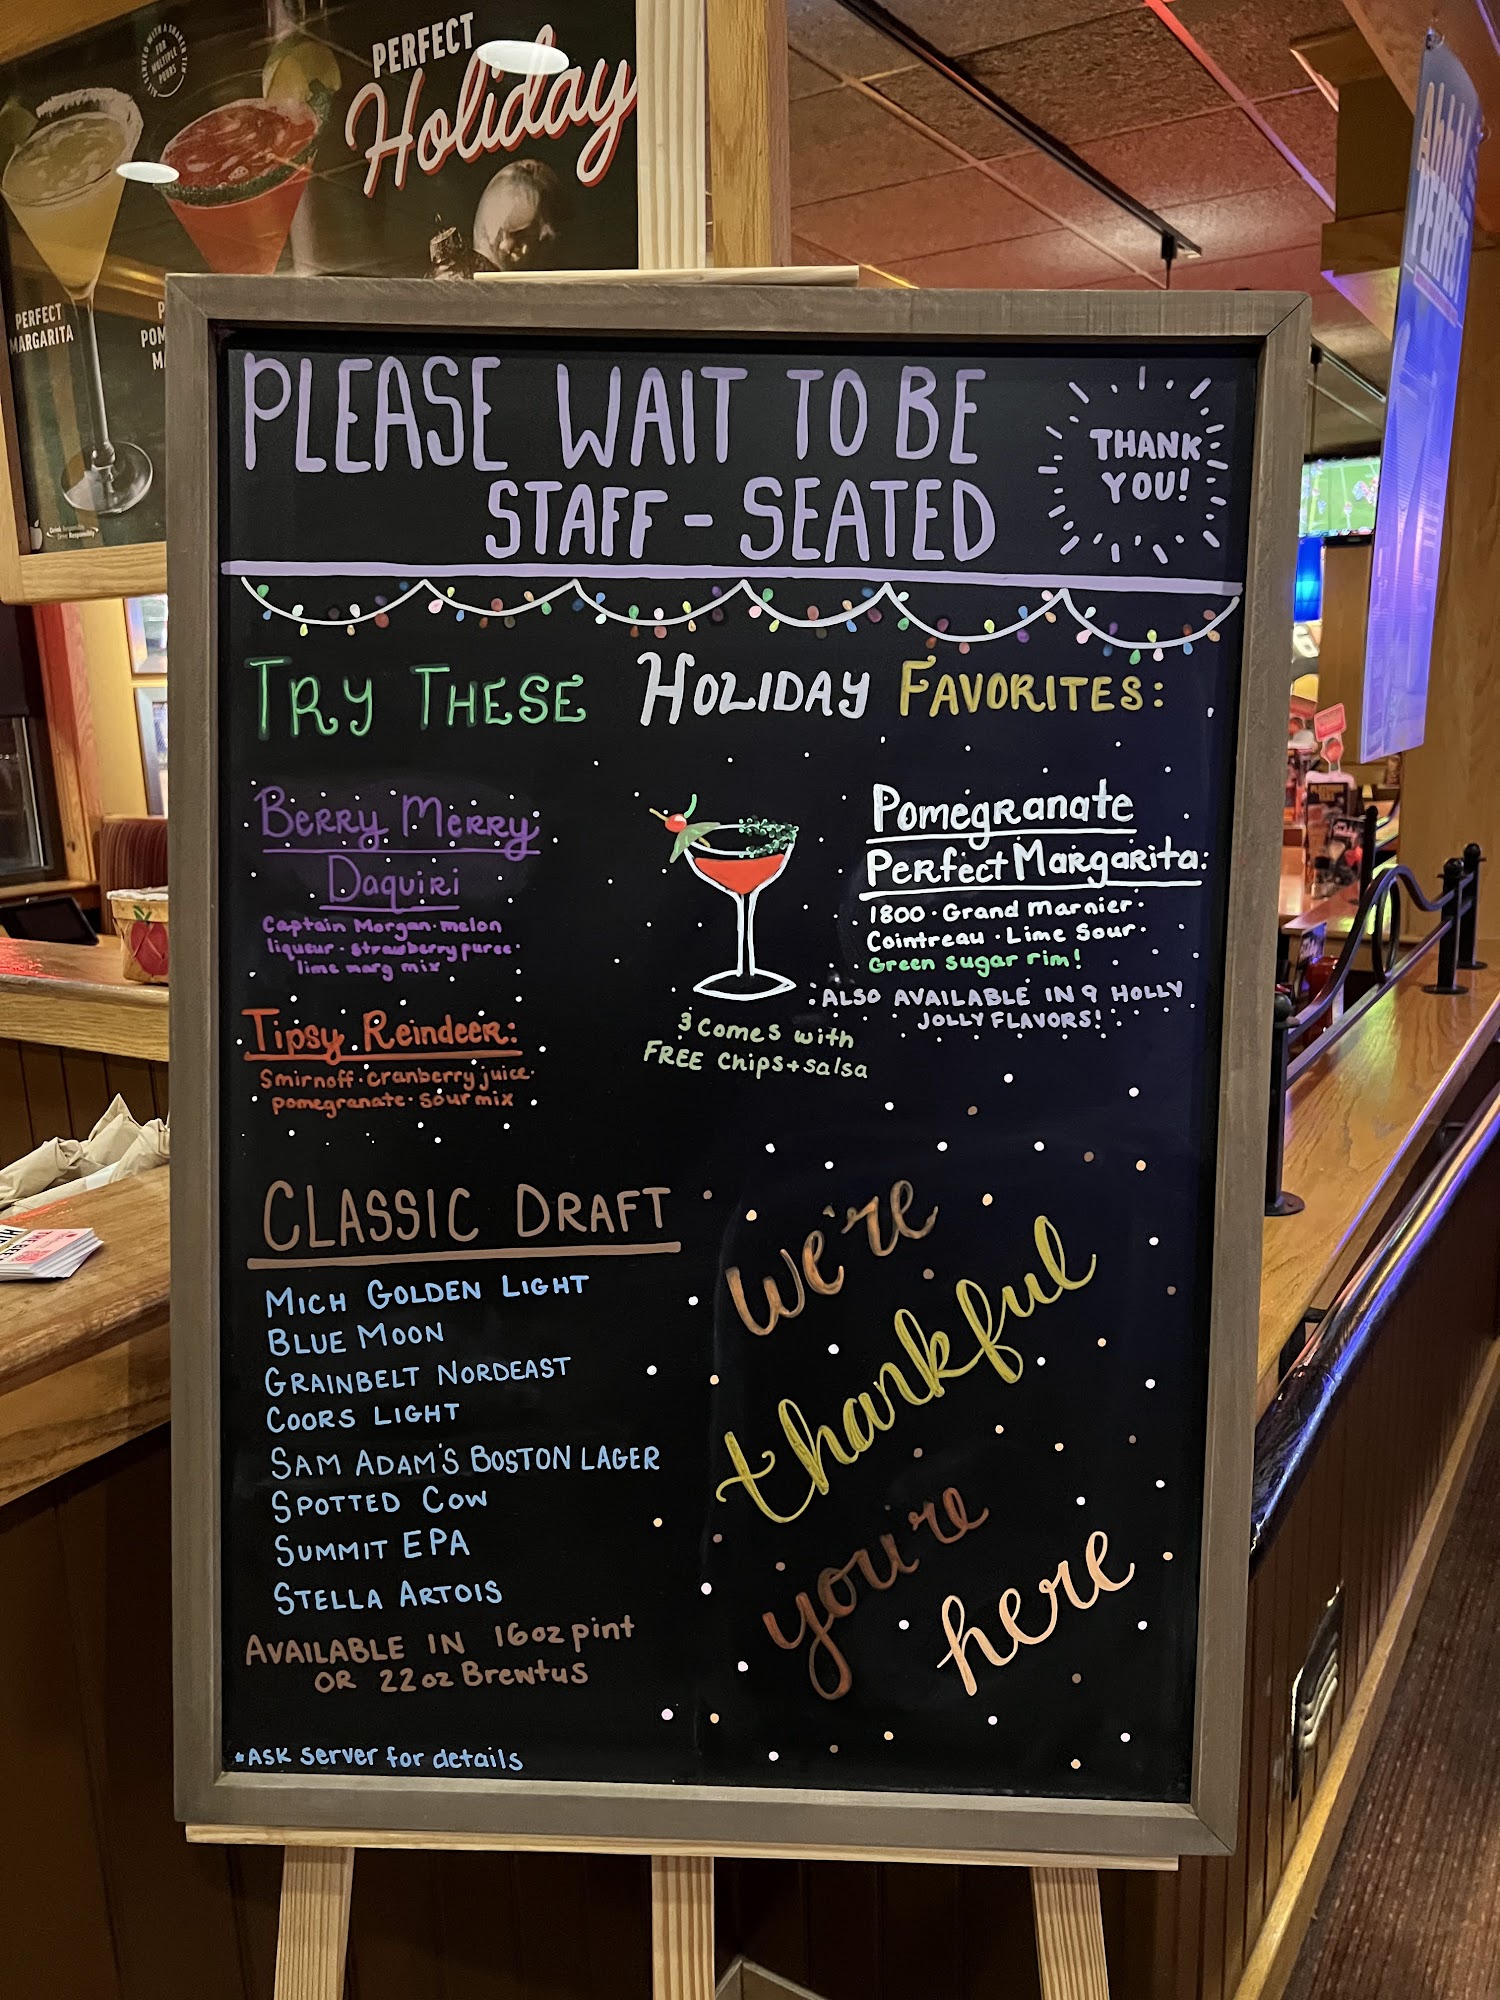 SERVED WITH A SHAKER TIN
FOR
MULTIPLE
POURS
PERFECT
Holiday
PERFECT
MARGARITA
Drink Responsibly
Drive Responsibly
Ahhh
PERFECT
PLEASE WAIT TO BE
STAFF - SEATED
THANK
YOU!
TRY THESE HOLIDAY FAVORITES:
BERRY MERRY
DAQUIRI
Captain Morgan · melon
liqueur · strawberry puree ·
lime marg mix
TIPSY REINDEER:
Smirnoff · cranberry juice ·
pomegranate · sour mix
3 comes with
FREE chips + salsa
Pomegranate
Perfect Margarita:
1800 · Grand Marnier ·
Cointreau · Lime Sour ·
Green sugar rim!
ALSO AVAILABLE IN 9 HOLLY
JOLLY FLAVORS!
CLASSIC DRAFT
MICH GOLDEN LIGHT
BLUE MOON
GRAINBELT NORDEAST
COORS LIGHT
SAM ADAM'S BOSTON LAGER
SPOTTED COW
SUMMIT EPA
STELLA ARTOIS
AVAILABLE IN 16oz pint
OR 22oz Brewtus
*ASK server for details
we're
thankful
you're
here